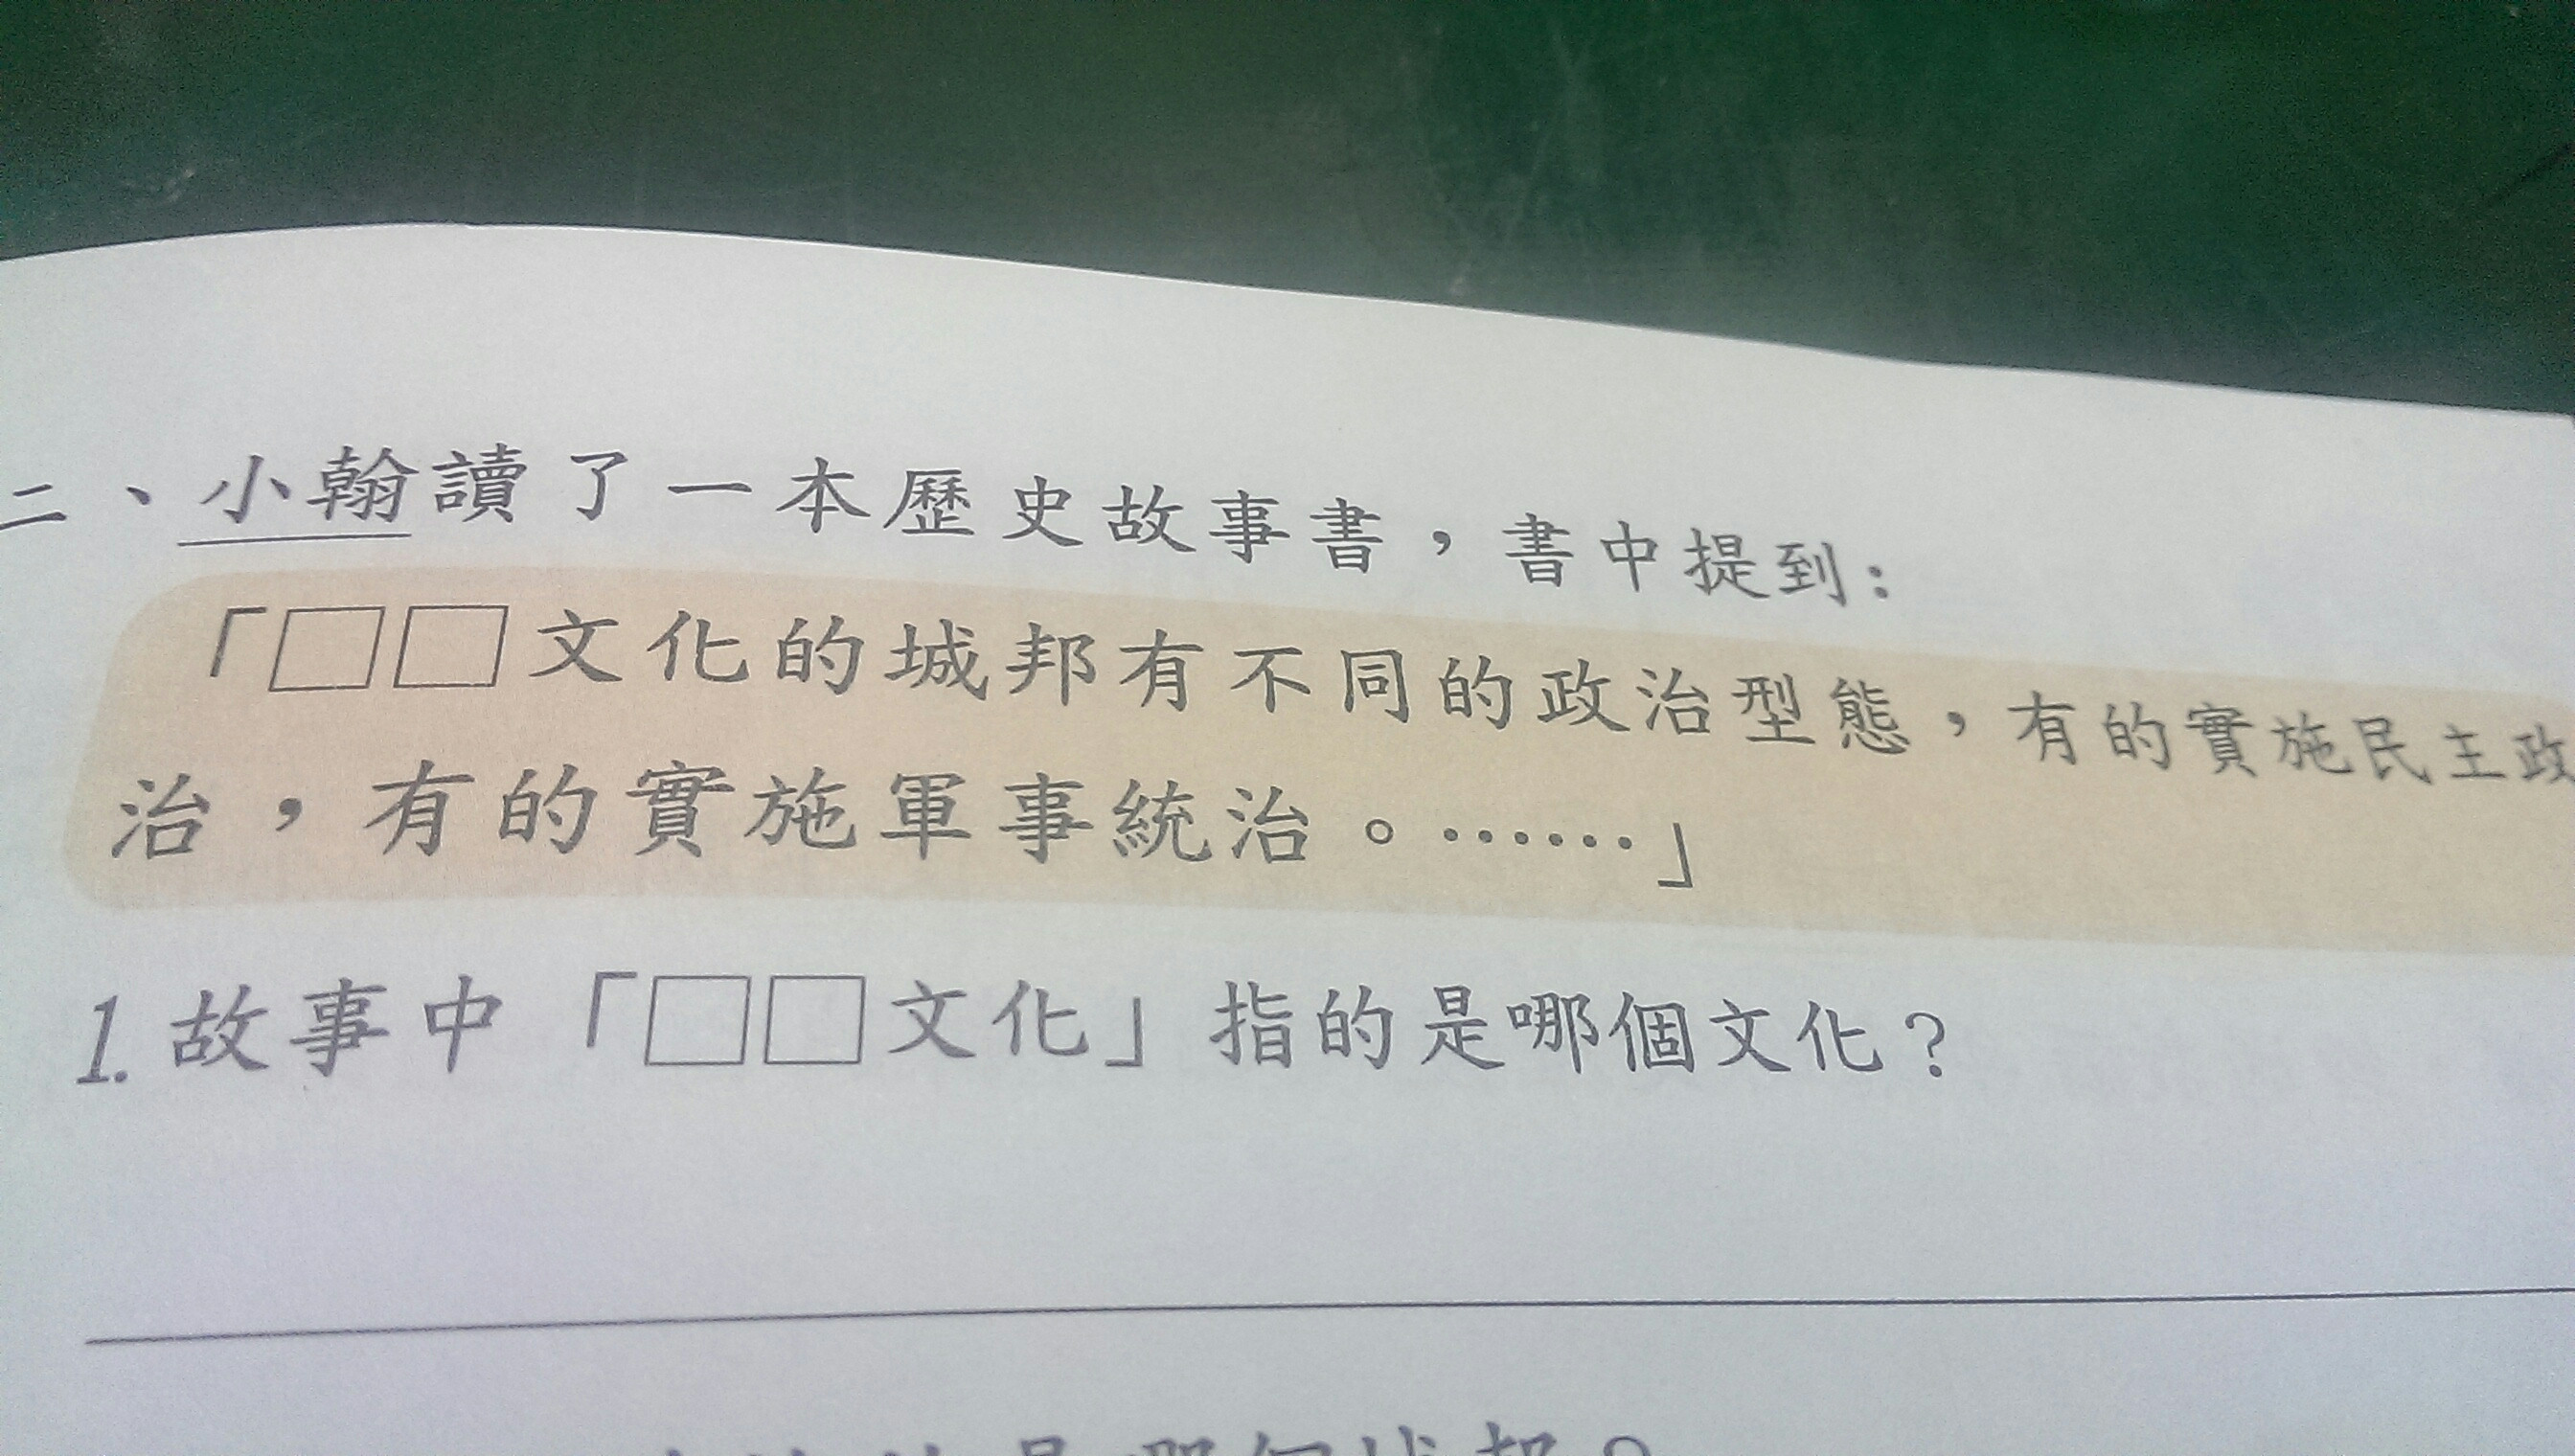 二、小翰讀了一本歷史故事書，書中提到：
「□□文化的城邦有不同的政治型態，有的實施民主政
治，有的實施軍事統治。……」
1.故事中「□□文化」指的是哪個文化？
是哪個城邦？